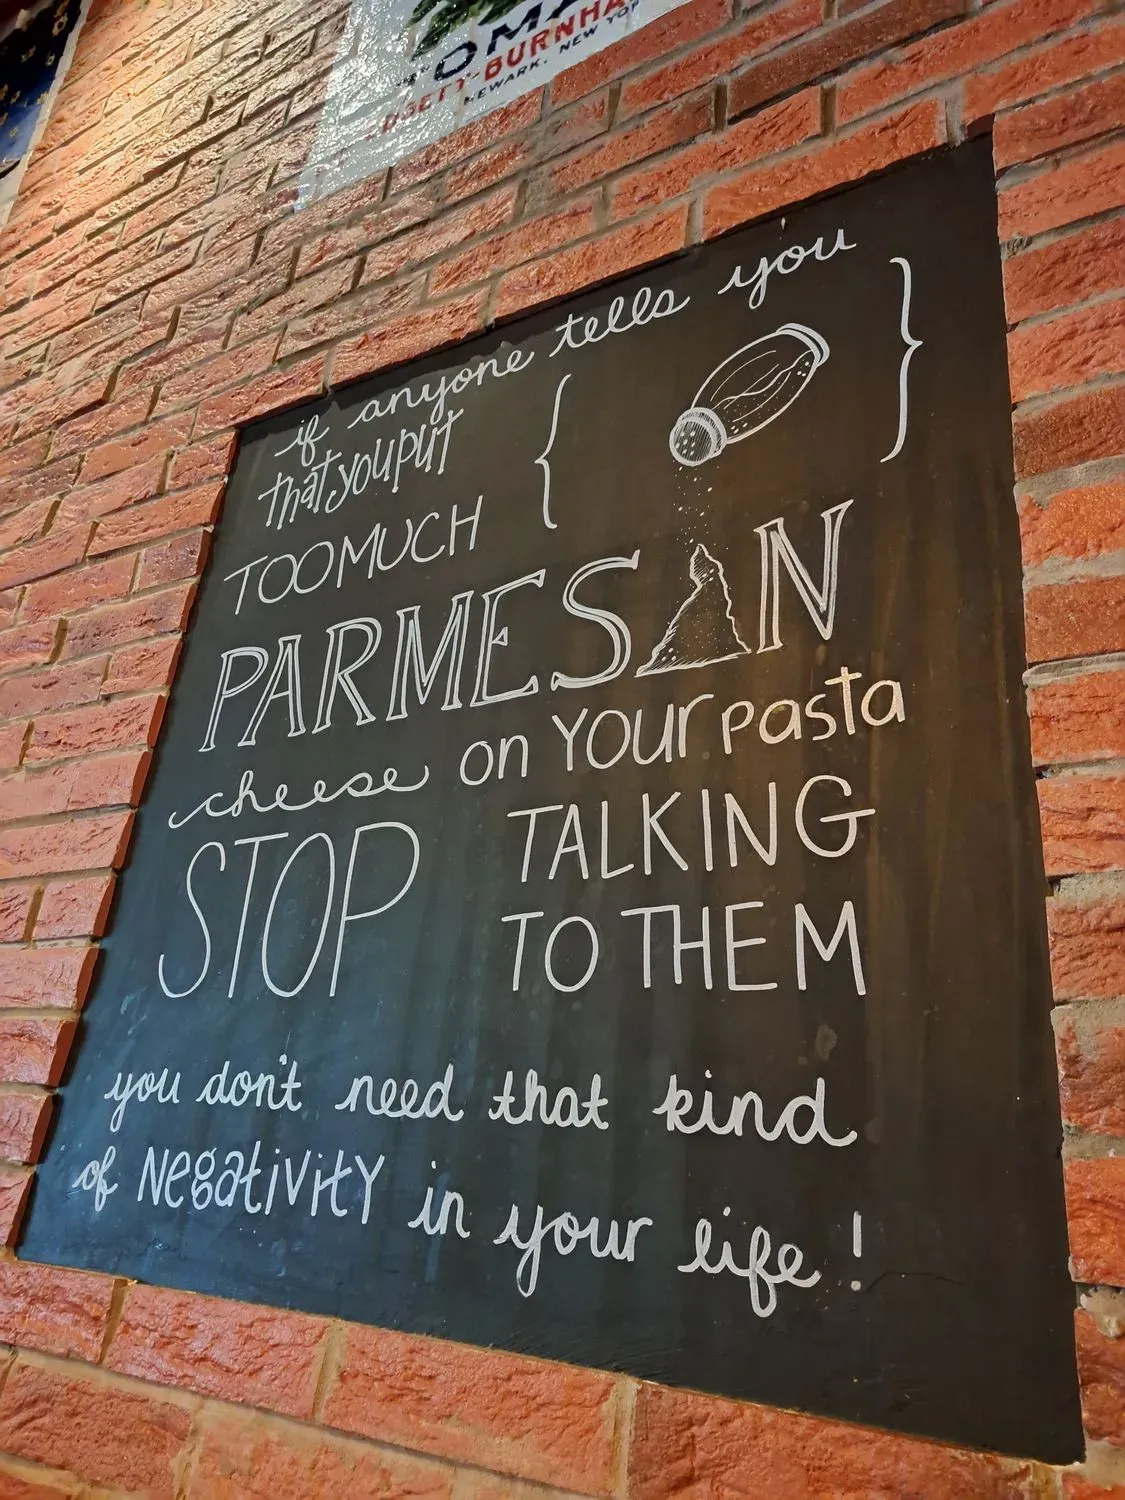 NEWARK, NEW YORK
if anyone tells you
that you put
TOO MUCH
PARMESAN
cheese on YOUr pasta
STOP TALKING
TO THEM
you don't need that kind
of NegativitY in your life!